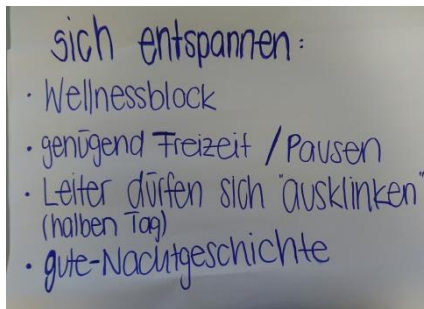 sich entspannen:
· Wellnessblock
· genügend Freizeit / Pausen
· Leiter dürfen sich "ausklinken"
(halben Tag)
· gute-Nachtgeschichte